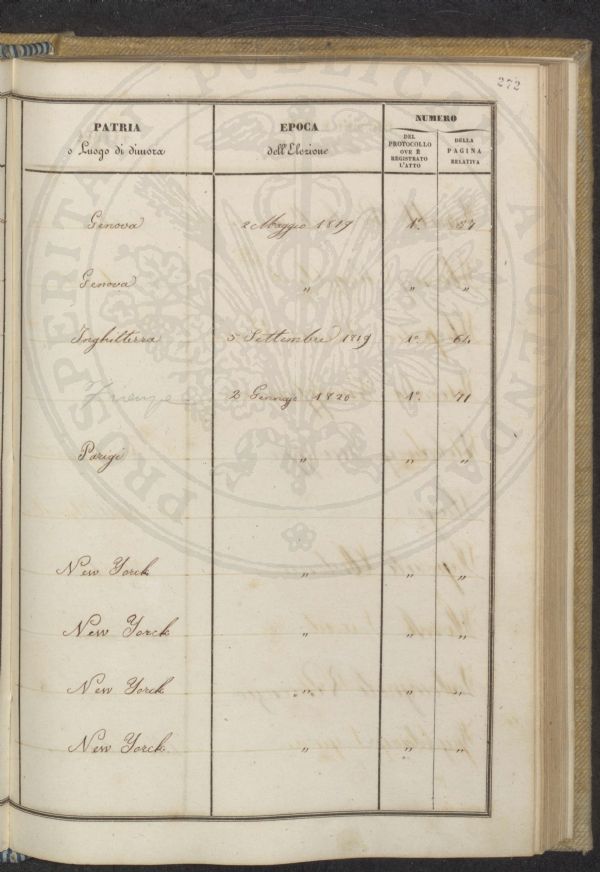 272
PATRIA
o Luogo di dimora
EPOCA
dell'Elezione
NUMERO
DEL
PROTOCOLLO
OVE È
REGISTRATO
L'ATTO
DELLA
PAGINA
RELATIVA
Genova 2 Maggio 1819 1°. 54
Genova " " "
Inghilterra 5 Settembre 1819 1° 64
Firenze 2 Gennajo 1820 1°. 71
Parigi " " "
New Yorck " " "
New Yorck " " "
New Yorck " " "
New Yorck " " "
PROSPERITATI PUBLICAE AUGENDAE